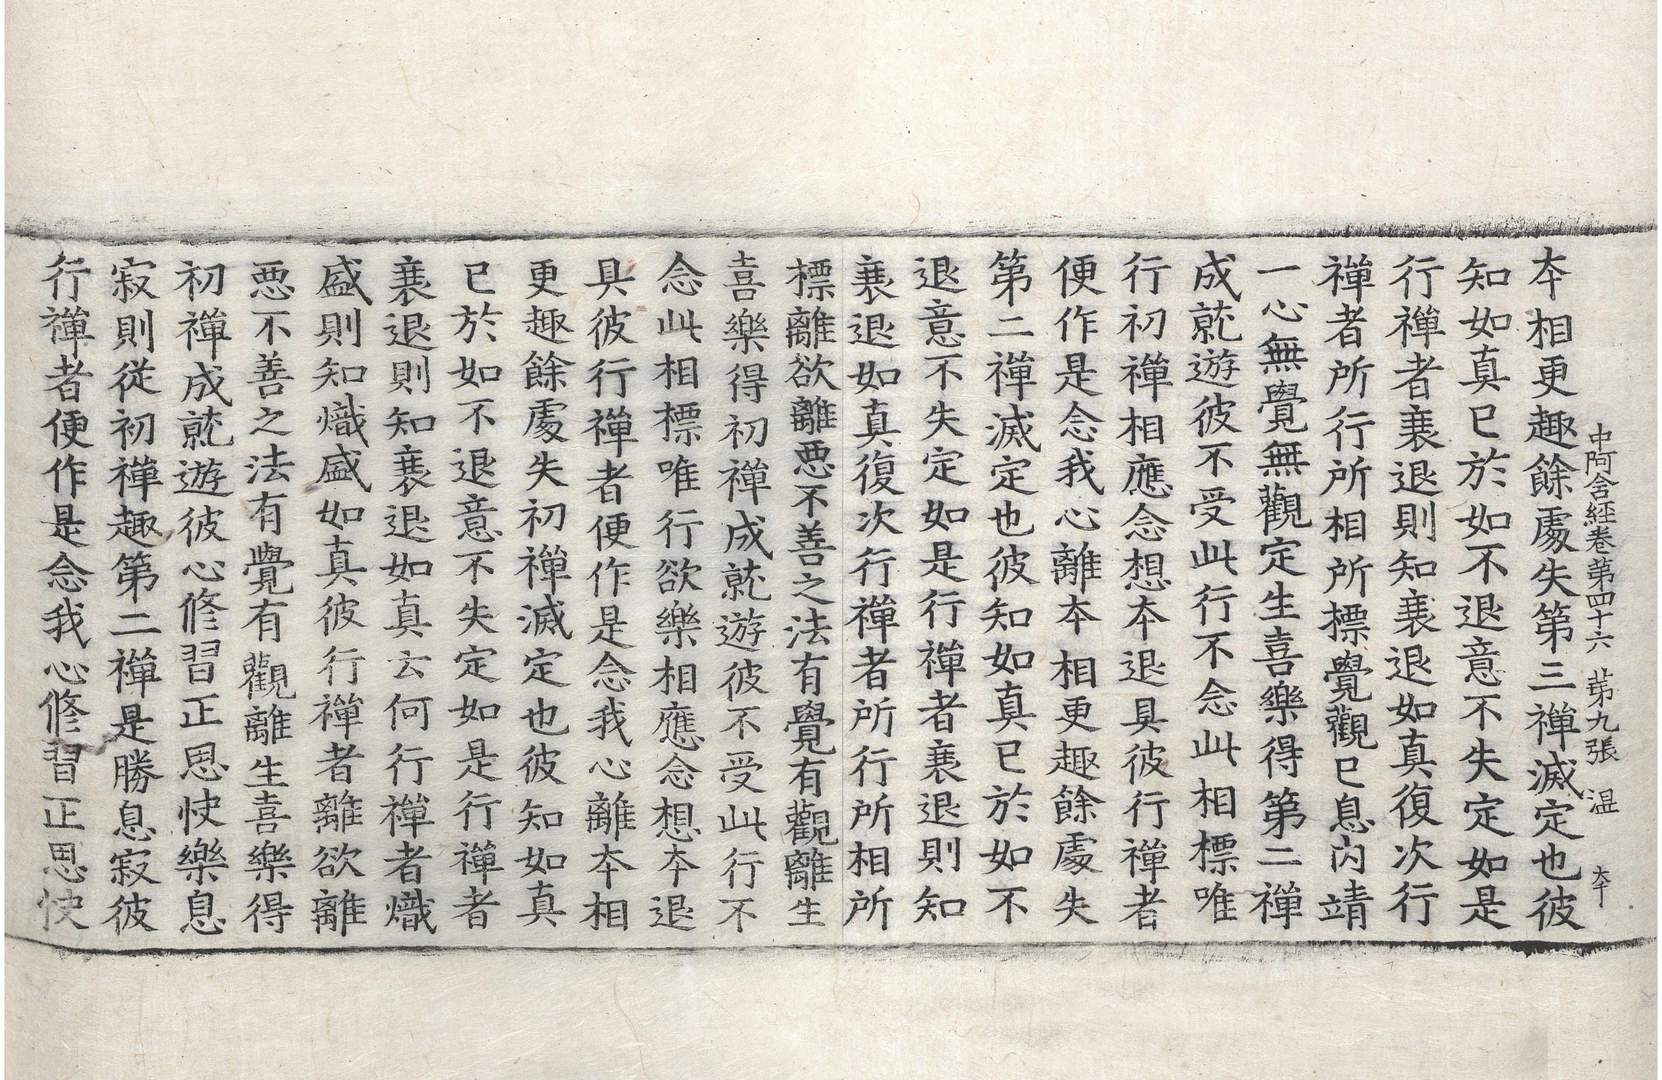 中阿含經卷第四十六 苐九張 温 大个
本相更趣餘處失第三禪滅定也彼
知如真已於如不退意不失定如是
行禪者衰退則知衰退如真復次行
禪者所行所相所標覺觀已息內靖
一心無覺無觀定生喜樂得第二禪
成就遊彼不受此行不念此相標唯
行初禪相應念想本退具彼行禪者
便作是念我心離本相更趣餘處失
第二禪滅定也彼知如真已於如不
退意不失定如是行禪者衰退則知
衰退如真復次行禪者所行所相所
標離欲離惡不善之法有覺有觀離生
喜樂得初禪成就遊彼不受此行不
念此相標唯行欲樂相應念想本退
具彼行禪者便作是念我心離本相
更趣餘處失初禪滅定也彼知如真
已於如不退意不失定如是行禪者
衰退則知衰退如真云何行禪者熾
盛則知熾盛如真彼行禪者離欲離
惡不善之法有覺有觀離生喜樂得
初禪成就遊彼心修習正思快樂息
寂則從初禪趣第二禪是勝息寂彼
行禪者便作是念我心修習正思快